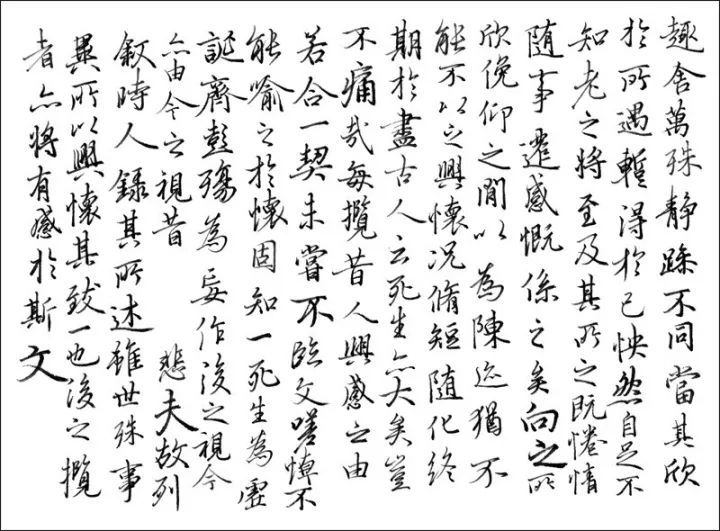 趣舍萬殊静躁不同當其欣
於所遇暫得於己怏然自足不
知老之將至及其所之既惓情
随事遷感慨係之矣向之所
欣俛仰之間以為陳迹猶不
能不以之興懷况脩短随化終
期於盡古人云死生亦大矣豈
不痛哉每攬昔人興感之由
若合一契未嘗不臨文嗟悼不
能喻之於懷固知一死生為虚
誕齊彭殤為妄作後之視今
亦由今之視昔 悲夫故列
敘時人錄其所述雖世殊事
異所以興懷其致一也後之攬
者亦將有感於斯文